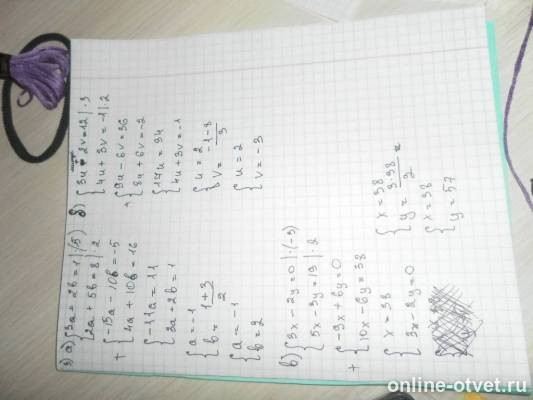 3) а) {3a + 2b = 1 | ·(-5)
{2a + 5b = 8 | ·2
+ {-15a - 10b = -5
{4a + 10b = 16
{-11a = 11
{3a + 2b = 1
{a = -1
{b = 1+3/2
{a = -1
{b = 2
б) {3u - 2v = 12 | ·3
{4u + 3v = -1 | ·2
+ {9u - 6v = 36
{8u + 6v = -2
{17u = 34
{4u + 3v = -1
{u = 2
{v = -1-8/3
{u = 2
{v = -3
в) {3x - 2y = 0 | ·(-3)
{5x - 3y = 19 | ·2
+ {-9x + 6y = 0
{10x - 6y = 38
{x = 38
{3x - 2y = 0
{x = 38
{y = 3·38/2
{x = 38
{y = 57
online-otvet.ru